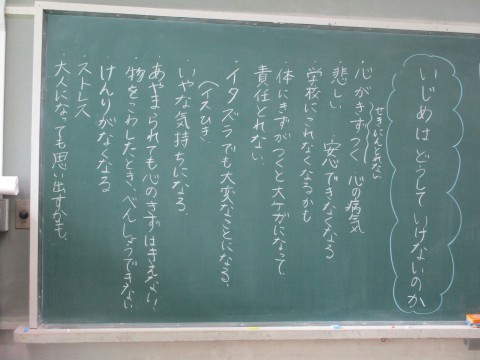 いじめは どうして いけないのか
せきにんとれない
・心がきずつく 心の病気
・悲しい 安心できなくなる
・学校にこれなくなるかも
・体にきずがつくと大ケガになって
責任とれない
・イタズラでも大変なことになる。
(イスひき
・いやな気持ちになる。
・あやまられても心のきずはきえない。
・物をこわしたとき、べんしょうできない
・けんりがなくなる
・ストレス
・大人になっても思い出すかも。